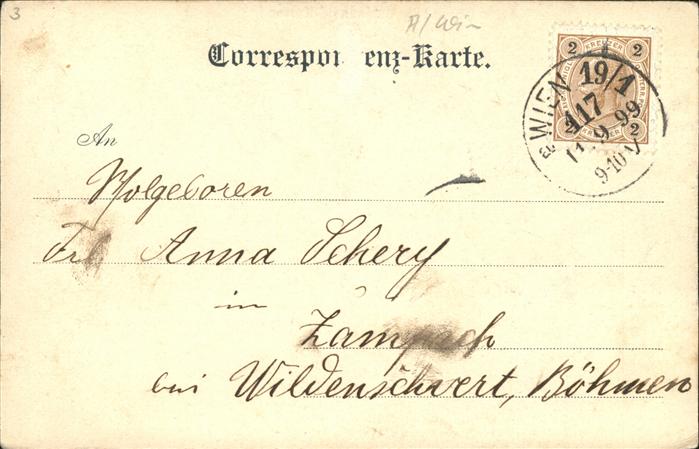 3
A/Wien
Correspondenz-Karte.
2 KREUZER 2
2 2
WIEN
19/1
117
11.9.99
9-10V
a
An
Wolgeboren
Frl Anna Schery
in
Zampach
bei Wildenschwert, Böhmen